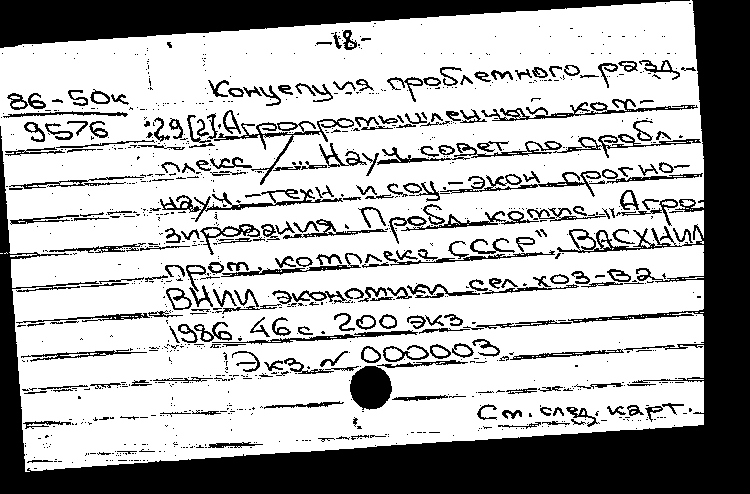 -18-
Концепция проблемного разд.
86-50к
9576
:2.9[2]: Агропромышленный ком-
плекс / ... Науч. совет по пробл.
науч.-техн. и соц.-экон прогно-
зирования. Пробл. комис. „Агро-
пром. комплекс СССР", ВАСХНИЛ
ВНИИ экономики сел. хоз-ва.
1986. 46с. 200 экз.
Экз. N 000003.
См. след. карт.